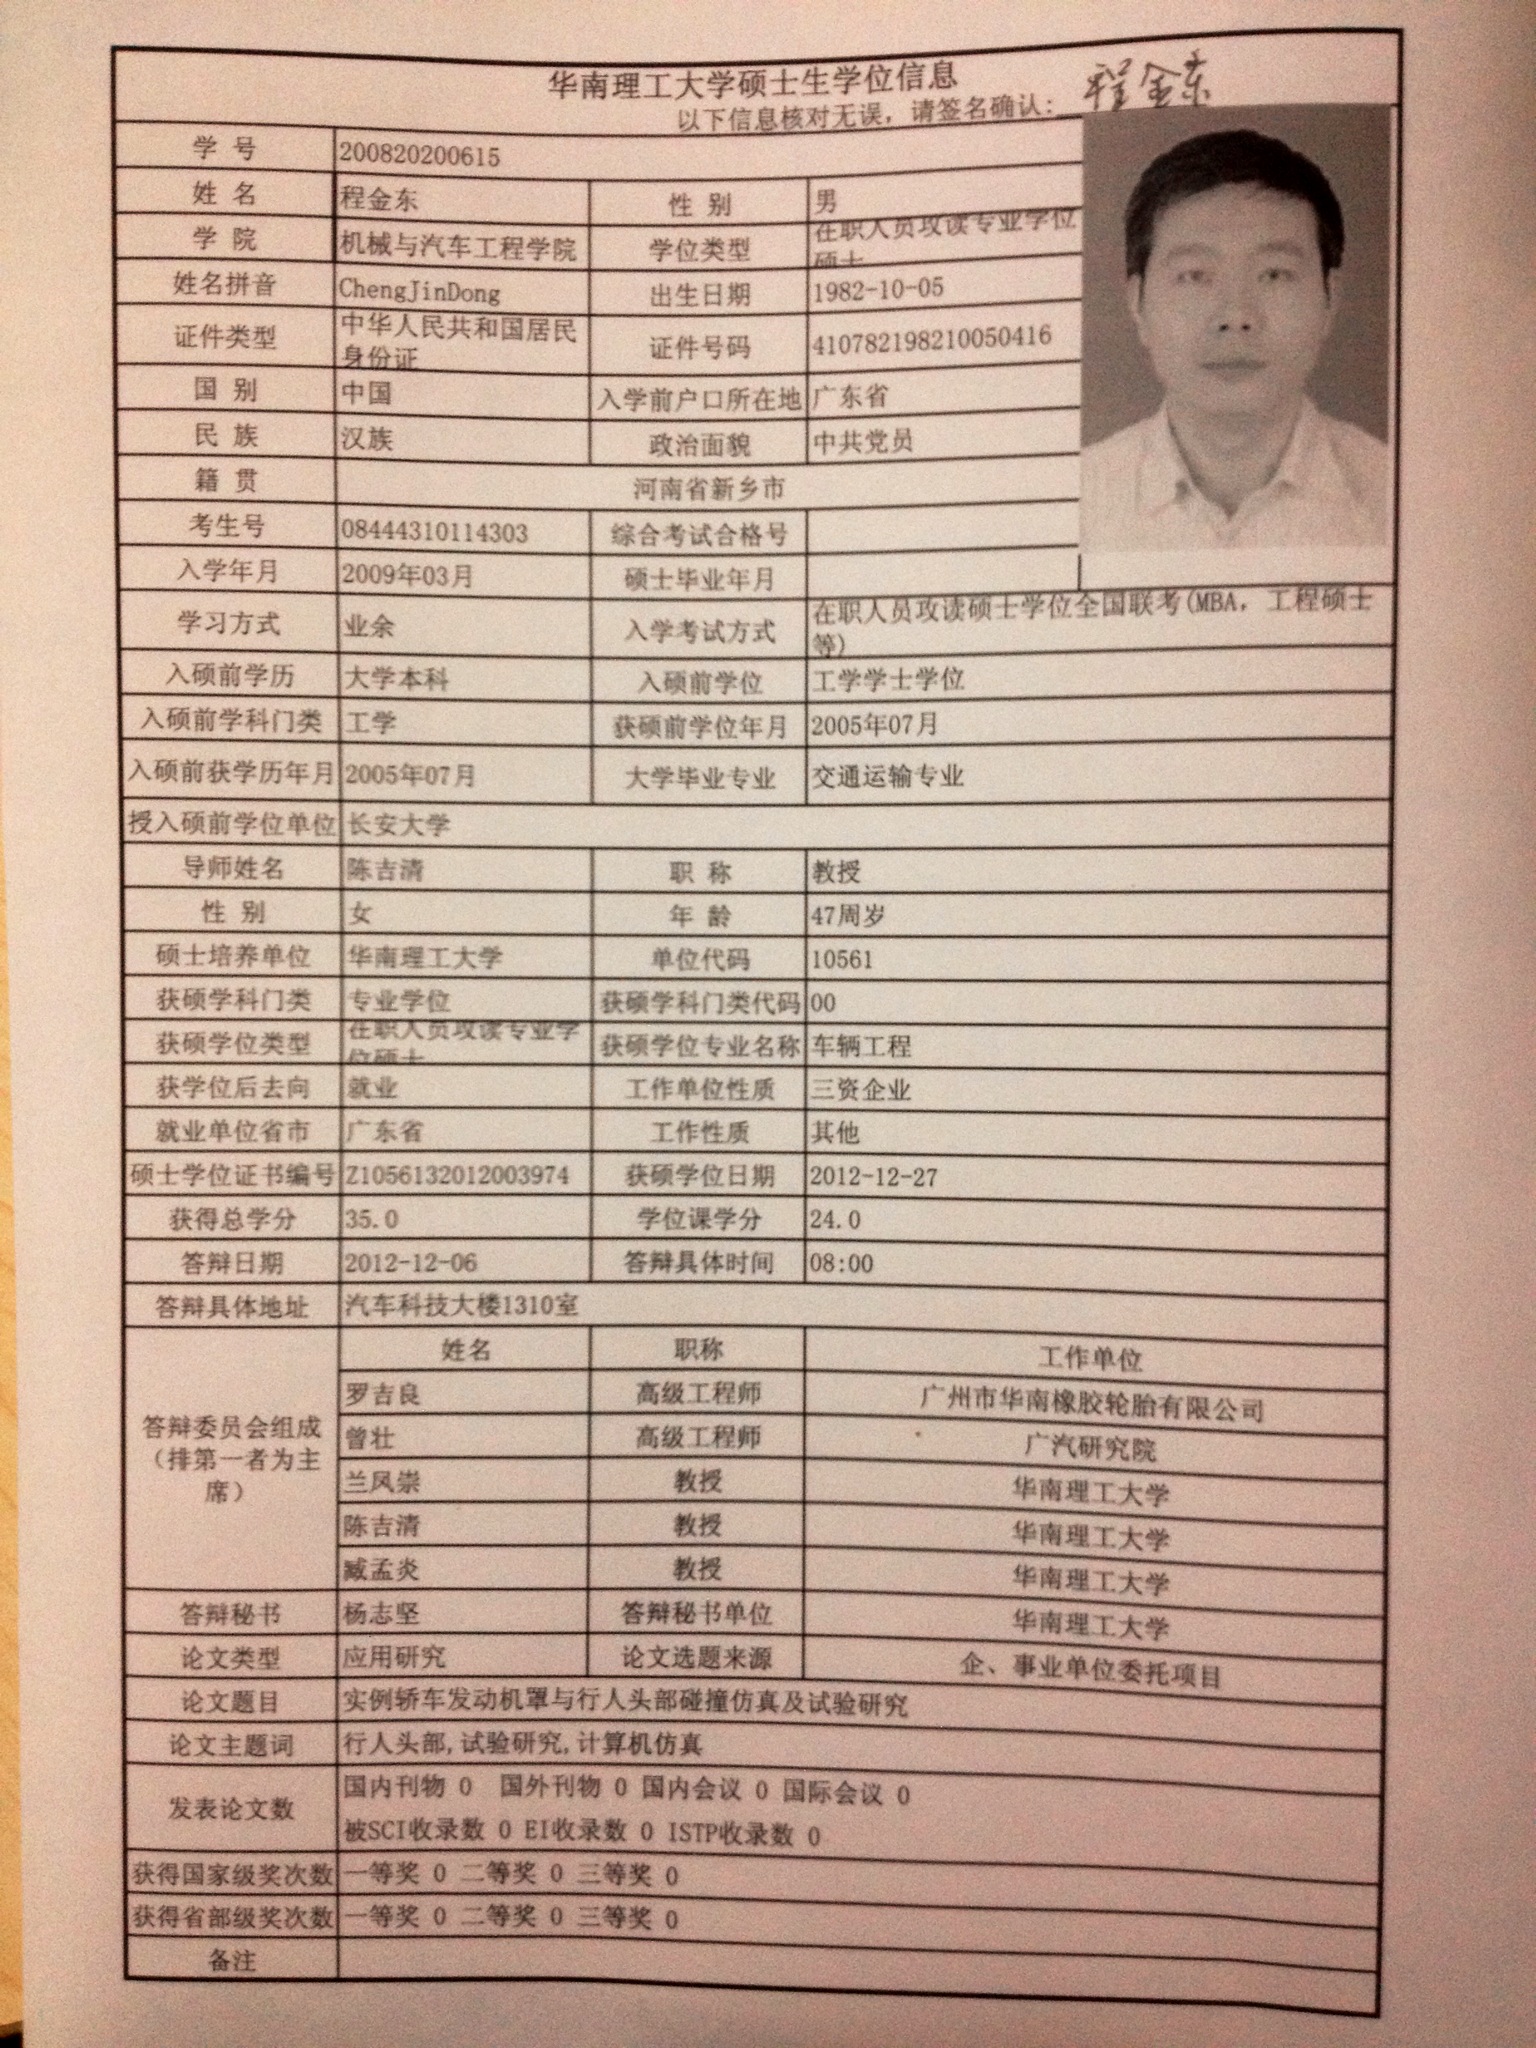 华南理工大学硕士生学位信息
以下信息核对无误，请签名确认： 程金东
学 号 200820200615
姓 名 程金东 性 别 男
学 院 机械与汽车工程学院 学位类型 在职人员攻读专业学位
硕士
姓名拼音 ChengJinDong 出生日期 1982-10-05
证件类型 中华人民共和国居民
身份证 证件号码 410782198210050416
国 别 中国 入学前户口所在地 广东省
民 族 汉族 政治面貌 中共党员
籍 贯 河南省新乡市
考生号 08444310114303 综合考试合格号
入学年月 2009年03月 硕士毕业年月
学习方式 业余 入学考试方式 在职人员攻读硕士学位全国联考(MBA，工程硕士
等)
入硕前学历 大学本科 入硕前学位 工学学士学位
入硕前学科门类 工学 获硕前学位年月 2005年07月
入硕前获学历年月 2005年07月 大学毕业专业 交通运输专业
授入硕前学位单位 长安大学
导师姓名 陈吉清 职 称 教授
性 别 女 年 龄 47周岁
硕士培养单位 华南理工大学 单位代码 10561
获硕学科门类 专业学位 获硕学科门类代码 00
获硕学位类型 在职人员攻读专业学
位硕士 获硕学位专业名称 车辆工程
获学位后去向 就业 工作单位性质 三资企业
就业单位省市 广东省 工作性质 其他
硕士学位证书编号 Z1056132012003974 获硕学位日期 2012-12-27
获得总学分 35.0 学位课学分 24.0
答辩日期 2012-12-06 答辩具体时间 08:00
答辩具体地址 汽车科技大楼1310室
答辩委员会组成
（排第一者为主
席）
姓名 职称 工作单位
罗吉良 高级工程师 广州市华南橡胶轮胎有限公司
曾壮 高级工程师 广汽研究院
兰凤崇 教授 华南理工大学
陈吉清 教授 华南理工大学
臧孟炎 教授 华南理工大学
答辩秘书 杨志坚 答辩秘书单位 华南理工大学
论文类型 应用研究 论文选题来源 企、事业单位委托项目
论文题目 实例轿车发动机罩与行人头部碰撞仿真及试验研究
论文主题词 行人头部,试验研究,计算机仿真
发表论文数 国内刊物 0 国外刊物 0 国内会议 0 国际会议 0
被SCI收录数 0 EI收录数 0 ISTP收录数 0
获得国家级奖次数 一等奖 0 二等奖 0 三等奖 0
获得省部级奖次数 一等奖 0 二等奖 0 三等奖 0
备注